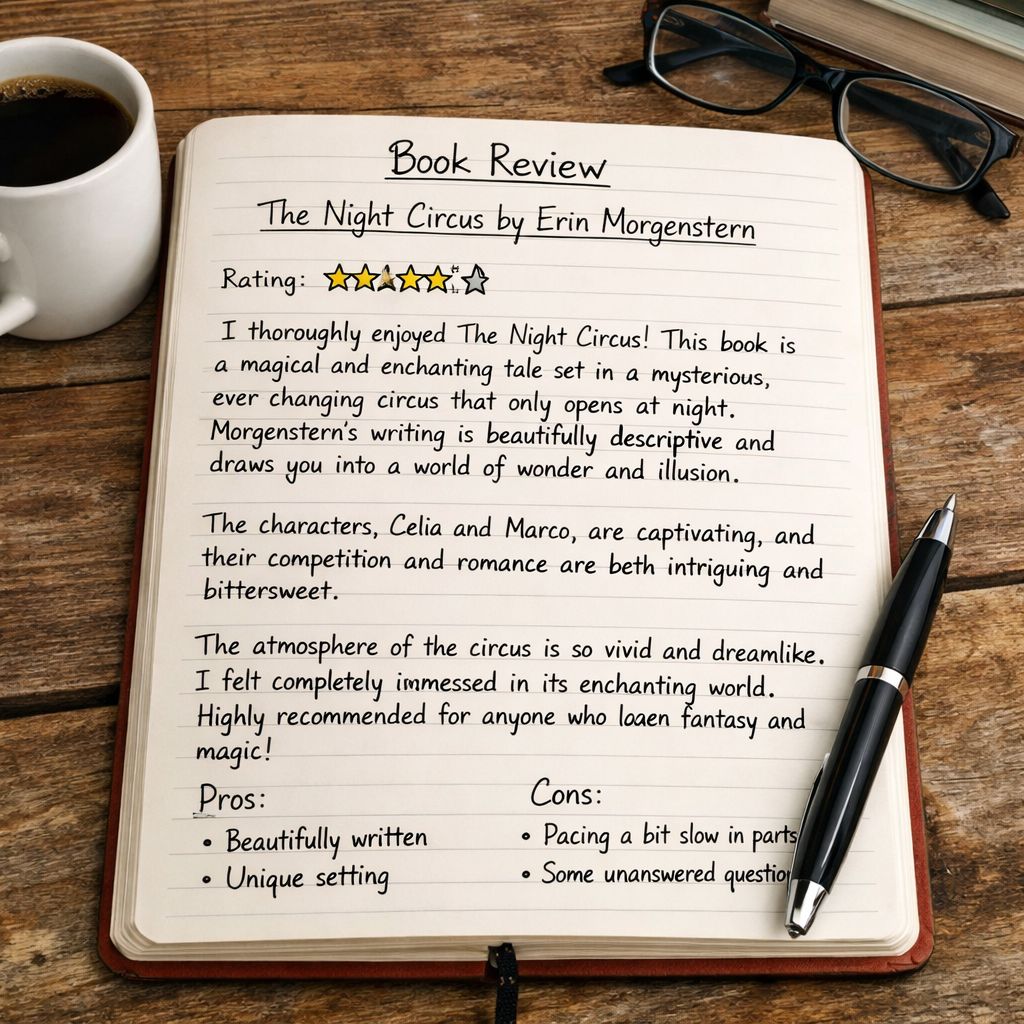 Book Review
The Night Circus by Erin Morgenstern
Rating:
I thoroughly enjoyed The Night Circus! This book is
a magical and enchanting tale set in a mysterious,
ever changing circus that only opens at night.
Morgenstern's writing is beautifully descriptive and
draws you into a world of wonder and illusion.
The characters, Celia and Marco, are captivating, and
their competition and romance are beth intriguing and
bittersweet.
The atmosphere of the circus is so vivid and dreamlike.
I felt completely immessed in its enchanting world.
Highly recommended for anyone who loaen fantasy and
magic!
Pros:
• Beautifully written
• Unique setting
Cons:
• Pacing a bit slow in parts
• Some unanswered